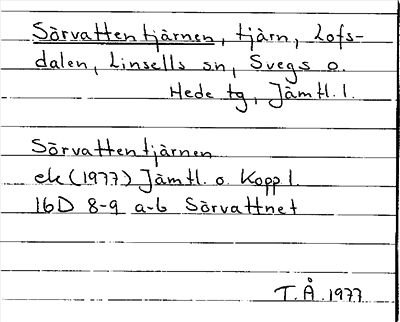 Sörvattentjärnen, tjärn, Lofs-
dalen, Linsells sn, Svegs o.
Hede tg, Jämtl. l.
Sörvattentjärnen
ek (1977) Jämtl. o. Kopp l.
16D 8-9 a-b Sörvattnet
T.Å. 1977